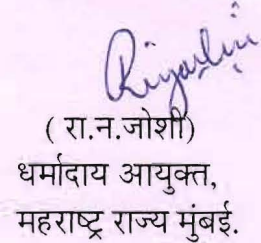 ( रा.न.जोशी)
धर्मादाय आयुक्त,
महराष्ट्र राज्य मुंबई.